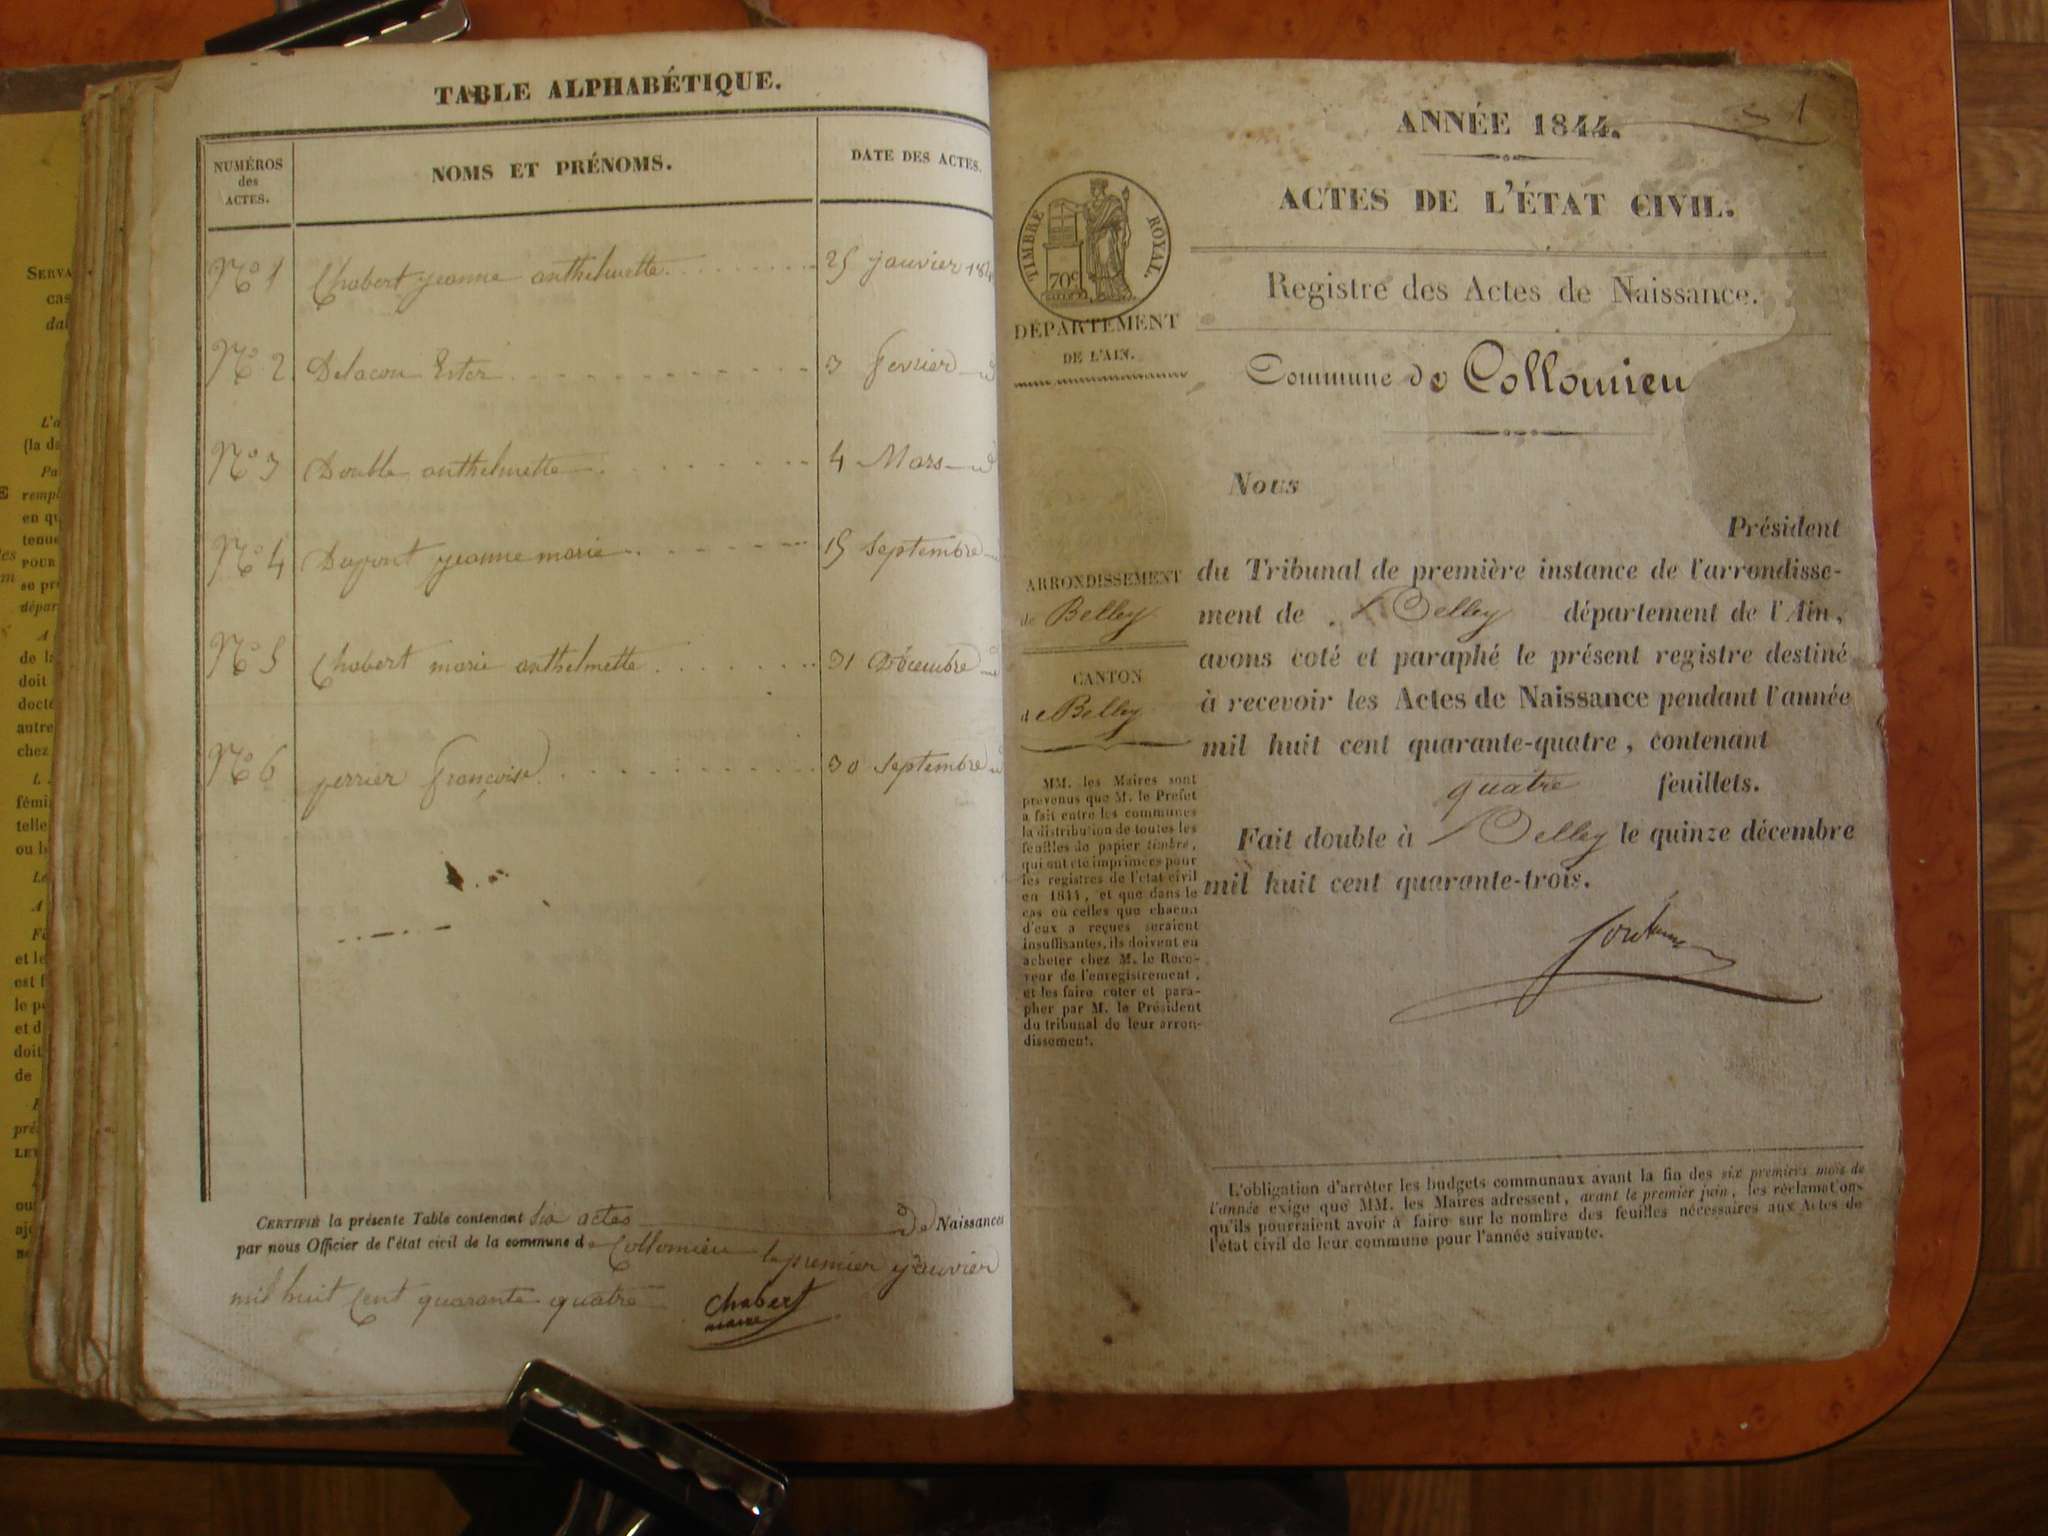 TABLE ALPHABÉTIQUE.
NUMÉROS
des
ACTES.
NOMS ET PRÉNOMS.
DATE DES ACTES.
No 1 Chabert jeanne anthelmette 25 janvier 184
No 2 Ester 3 fevrier
No 3 Double anthelmette 4 Mars
No 4 Dupont jeanne marie 15 septembre
No 5 Chabert marie anthelmette 31 Décembre
No 6 perrier françoise 30 septembre
CERTIFIÉ la présente Table contenant six actes de Naissances
par nous Officier de l'état civil de la commune de Collomieu le premier janvier
mil huit cent quarante quatre
Chabert
maire
1
ANNÉE 1844.
ACTES DE L'ÉTAT CIVIL.
TIMBRE ROYAL.
70c
Registre des Actes de Naissance.
DÉPARTEMENT
DE L'AIN.
Commune de Collomieu
ARRONDISSEMENT
de Belley
CANTON
de Belley
MM. les Maires sont
prévenus que M. le Préfet
a fait entre les communes
la distribution de toutes les
feuilles de papier timbré,
qui ont été imprimées pour
les registres de l'état civil
en 1844, et que dans le
cas où celles que chacun
d'eux a reçues seraient
insuffisantes, ils doivent en
acheter chez M. le Rece-
veur de l'enregistrement,
et les faire coter et para-
pher par M. le Président
du tribunal de leur arron-
dissement.
Nous
Président
du Tribunal de première instance de l'arrondisse-
ment de Belley département de l'Ain,
avons coté et paraphé le présent registre destiné
à recevoir les Actes de Naissance pendant l'année
mil huit cent quarante-quatre, contenant
quatre feuillets.
Fait double à Belley le quinze décembre
mil huit cent quarante-trois.
L'obligation d'arrêter les budgets communaux avant la fin des six premiers mois de
l'année exige que MM. les Maires adressent, avant le premier juin, les réclamations
qu'ils pourraient avoir à faire sur le nombre des feuilles nécessaires aux Actes de
l'état civil de leur commune pour l'année suivante.